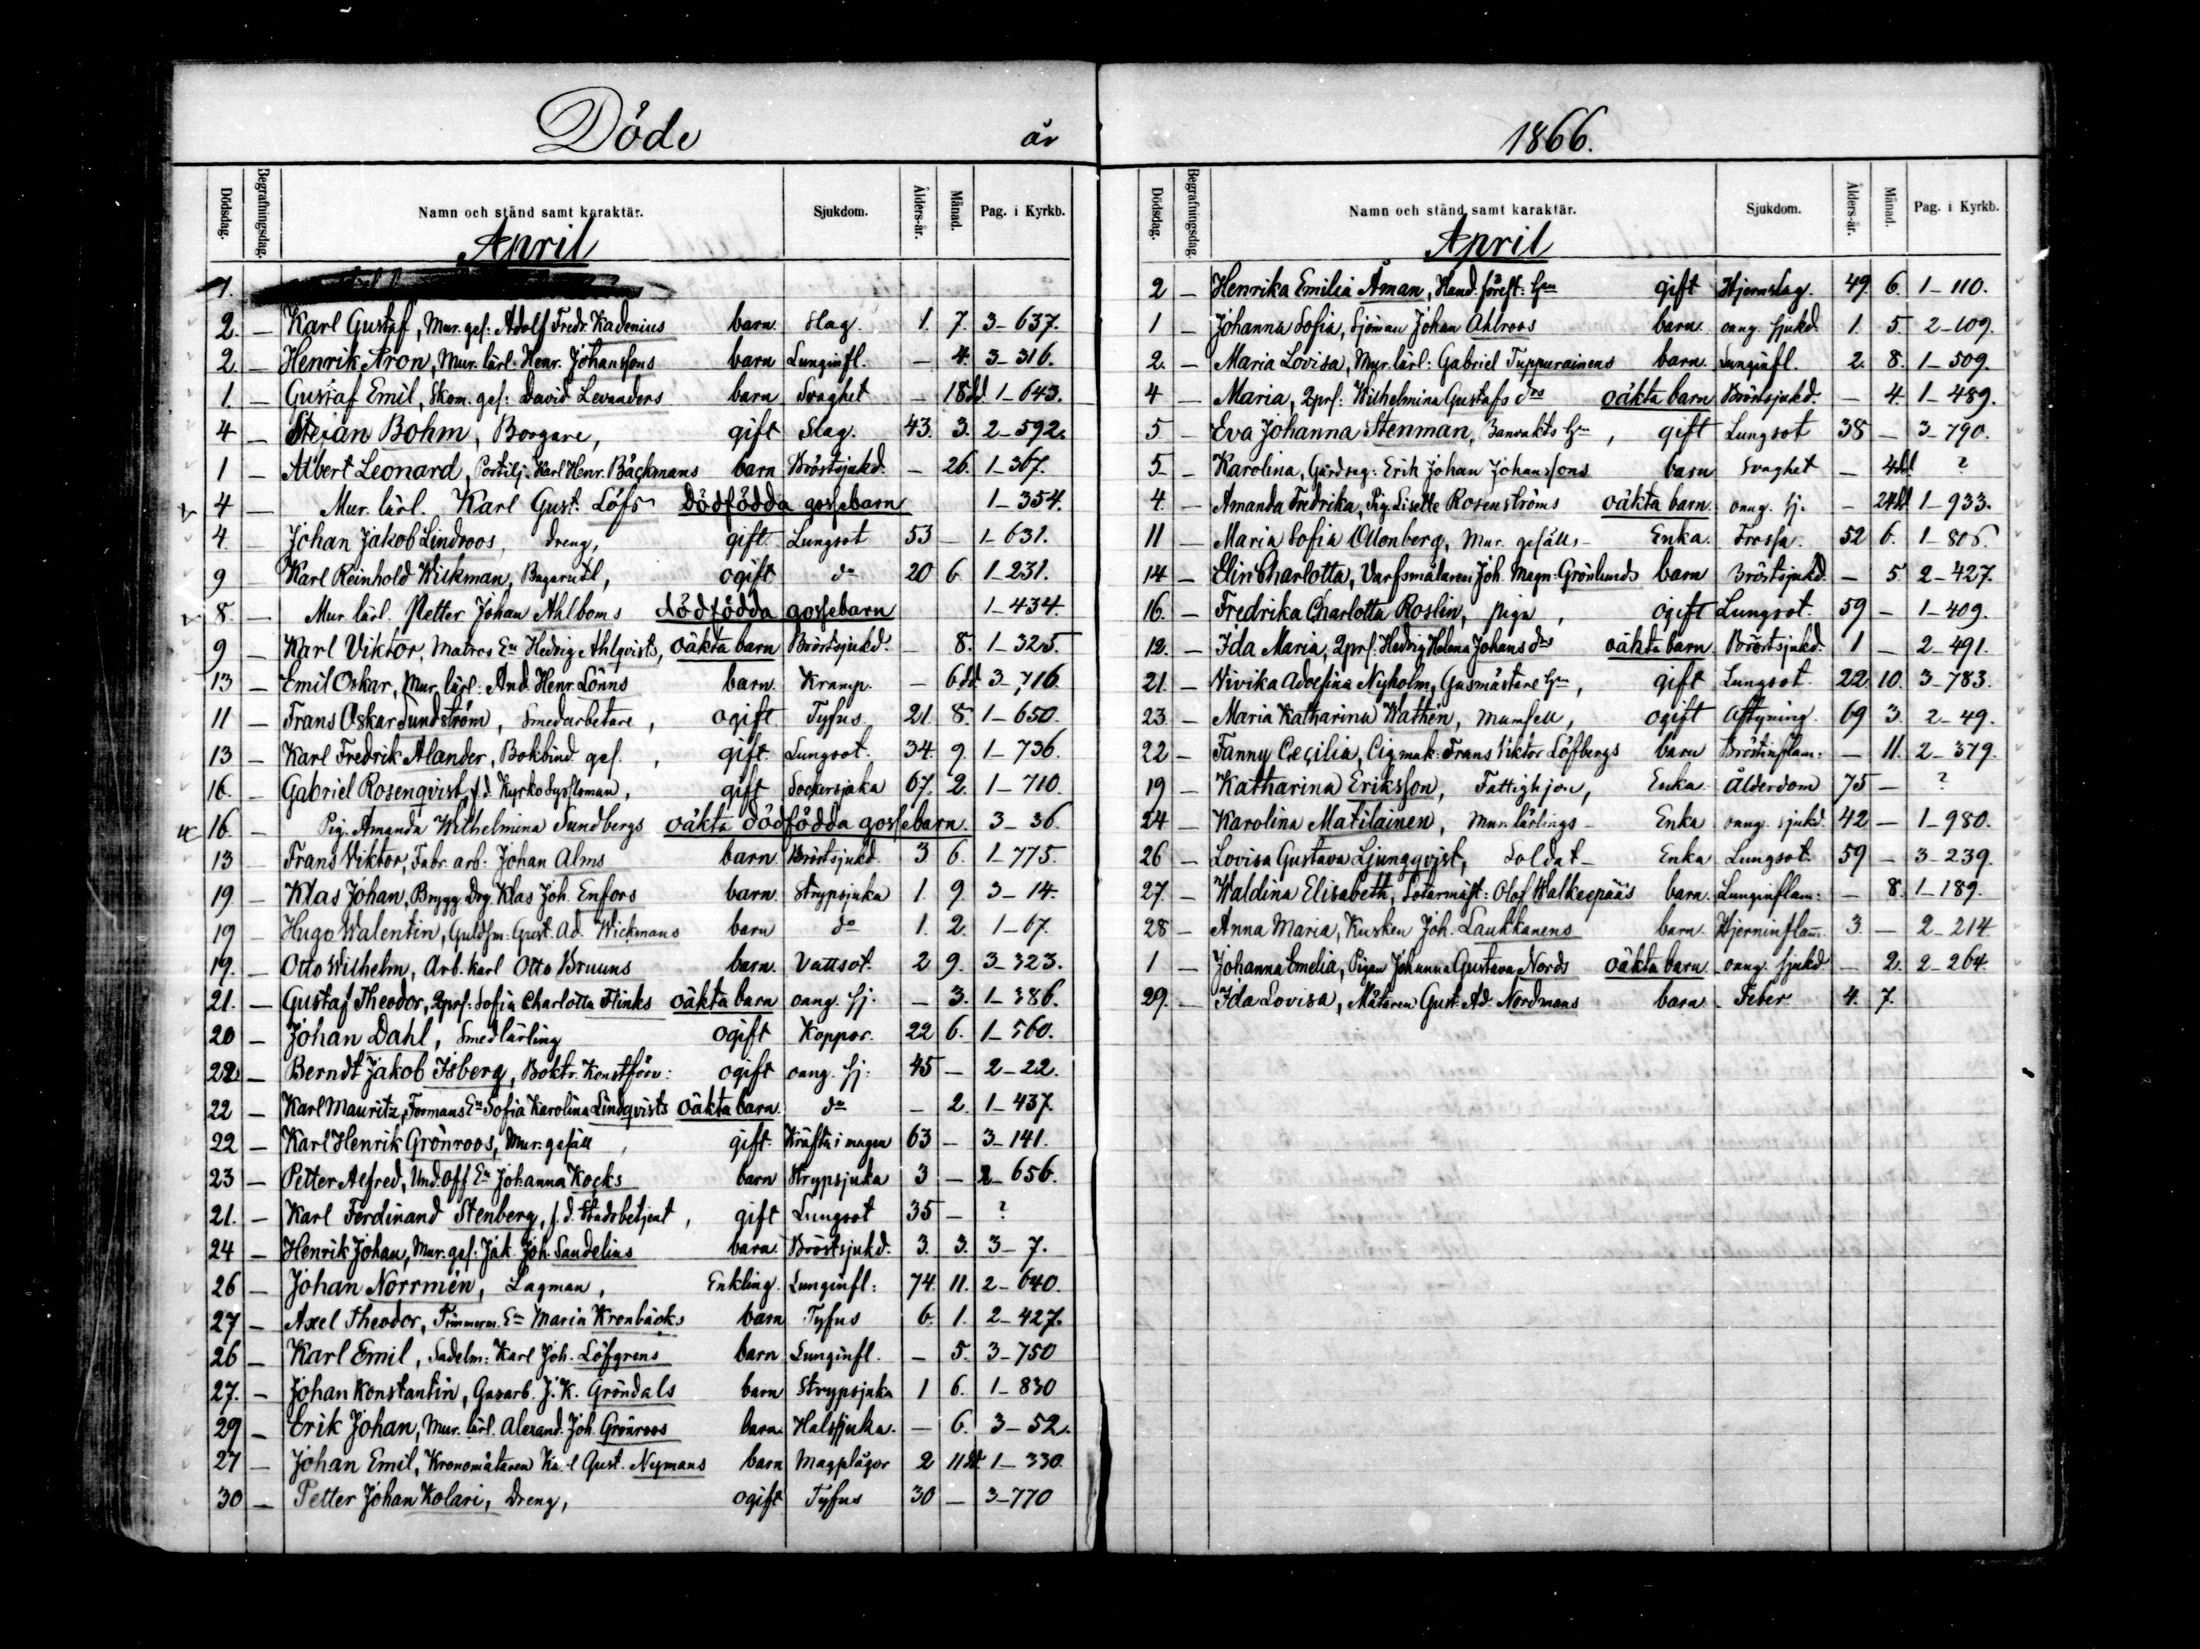 Döde år
Dödsdag. Begrafningsdag. Namn och stånd samt karaktär. Sjukdom. Ålders-år. Månad. Pag. i Kyrkb.
April
1.
2. — Karl Gustaf, Mur. ges: Adolf Fredr. Kadenius barn. Slag. 1. 7. 3–637.
2. — Henrik Aron, Mur. lärl. Henr. Johanssons barn Lunginfl. — 4. 3–316.
1. — Gustaf Emil, Skom. ges: David Levanders barn Svaghet — 18dd 1–643.
4 — Stefan Bohm, Borgare, gift Slag. 43. 3. 2–592.
1 — Albert Leonard, Postilj. Karl Henr. Bäckmans barn Bröstsjukd. — 26. 1–367.
4 — Mur. lärl. Karl Gust. Löfs Dödfödda gossebarn 1–354.
4. — Johan Jakob Lindroos, dreng, gift. Lungsot 53 — 1–631.
9 — Karl Reinhold Wickman, Bagarutl, ogift do 20 6. 1–231.
8. — Mur. lärl. Petter Johan Ahlboms dödfödda gossebarn 1–434.
9 — Karl Viktor, Matros En Hedvig Ahlqvists, oäkta barn Bröstsjukd. — 8. 1–325.
13 — Emil Oskar, Mur. lärl: And. Henr. Lönns barn. Kramp. — 6dd 3–716.
11 — Frans Oskar Sundström, Smedarbetare, ogift Tyfus 21. 8. 1–650.
13 — Karl Fredrik Alander, Bokbind. ges., gift. Lungsot. 34. 9. 1–736.
16. — Gabriel Rosenqvist, f.d. Kyrkosyssloman, gift Sockersjuka 67. 2. 1–710.
16. — Pig. Amanda Wilhelmina Sundbergs oäkta dödfödda gossebarn. 3–36.
13 — Frans Viktor, Fabr. arb: Johan Alms barn Bröstsjukd. 3. 6. 1–775.
19. — Klas Johan, Brygg. Drg. Klas Joh. Enfors barn. Strypsjuka 1. 9. 3–14.
19 — Hugo Walentin, Guldsm. Gust. Ad. Wickmans barn do 1. 2. 1–67.
19. — Otto Wilhelm, Arb. karl Otto Bruuns barn. Vattsot. 2 9. 3–323.
21. — Gustaf Theodor, 2prs: Sofia Charlotta Flinks oäkta barn oang. sj. — 3. 1–386.
20 — Johan Dahl, Smedlärling ogift Koppor. 22 6. 1–560.
22 — Berndt Jakob Isberg, Boktr. Konstförv: ogift oang. sj. 45 — 2–22.
22 — Karl Mauritz, Formans En Sofia Karolina Lindqvists oäkta barn. do — 2. 1–437.
22 — Karl Henrik Grönroos, Mur. gesäll, gift. Kräfta i magen 63 — 3–141.
23 — Petter Alfred, Und. Off. En Johanna Kocks barn Strypsjuka 3 — 2–656.
21. — Karl Ferdinand Stenberg, f.d. Stadsbetjent, gift Lungsot 35 — ?
24 — Henrik Johan, Mur. ges: Jak. Joh. Sandelins barn. Bröstsjukd. 3. 3. 3–7.
26 — Johan Norrmén, Lagman, Enkling. Lunginfl: 74. 11. 2–640.
27 — Axel Theodor, Timmerm. En Maria Kronbäcks barn Tyfus 6. 1. 2–427.
26 — Karl Emil, Sadelm: Karl Joh. Löfgrens barn Lunginfl. — 5. 3–750
27. — Johan Konstantin, Gasarb. J. K. Gröndals barn Strypsjuka 1 6. 1–830
29 — Erik Johan, Mur. lärl. Alexand. Joh. Grönroos barn. Halssjuka. — 6. 3–52.
27 — Johan Emil, Kronomätaren Karl Gust. Nymans barn Magplågor 2 11dd 1–330.
30 — Petter Johan Kolari, Dreng, ogift Tyfus 30 — 3–770
1866.
Dödsdag. Begrafningsdag. Namn och stånd samt karaktär. Sjukdom. Ålders-år. Månad. Pag. i Kyrkb.
April
2 — Henrika Emilia Åman, Hand. förest: Hru gift Hjernslag. 49. 6. 1–110.
1 — Johanna Sofia, Sjöman Johan Ahlroos barn. oang. sjukd. 1. 5. 2–109.
2. — Maria Lovisa, Mur. lärl: Gabriel Tuppurainens barn. Lunginfl. 2. 8. 1–509.
4 — Maria, 2prs: Wilhelmina Gustafsdrs oäkta barn Bröstsjukd. — 4. 1–489.
5 — Eva Johanna Stenman, Banvakts Hru, gift Lungsot 38 — 3–790.
5 — Karolina, Gårdseg: Erik Johan Johanssons barn Svaghet — 4dd ?
4. — Amanda Fredrika, Pig. Lisette Rosenströms oäkta barn. oang. sj. — 24dd 1–933.
11 — Maria Sofia Ollonberg, Mur. gesälls– Enka. Frossa. 52 6. 1–806.
14 — Elin Charlotta, Varfsmålaren Joh. Magn. Grönlunds barn Bröstsjukd. — 5. 2–427.
16. — Fredrika Charlotta Roslin, piga, ogift Lungsot. 59 — 1–409.
12. — Ida Maria, 2prs. Hedvig Helena Johansdrs oäkta barn Bröstsjukd. 1 — 2–491.
21. — Vivika Adolfina Nyholm, Gasmästare Hru, gift Lungsot. 22 10. 3–783.
23 — Maria Katharina Wathén, Mamsell, ogift Aftyning. 69 3. 2–49.
22 — Fanny Cecilia, Cig. mak. Frans Viktor Löfbergs barn Bröstinflam: — 11. 2–379.
19 — Katharina Eriksson, Fattighjon, Enka. Ålderdom 75 — ?
24 — Karolina Matilainen, Mur. lärlings– Enka oang. sjukd. 42 — 1–980.
26 — Lovisa Gustava Ljungqvist, Soldat– Enka Lungsot. 59 — 3–239.
27. — Waldina Elisabeth, Sotarmäst: Olof Walkeepääs barn. Lunginflam: — 8. 1–189.
28 — Anna Maria, Kusken Joh. Laukkanens barn. Hjerninflam. 3. — 2–214.
1 — Johanna Emelia, Pigan Johanna Gustava Nords oäkta barn oang. sjukd. — 2. 2–264.
29. — Ida Lovisa, Mätaren Gust. Ad. Nordmans barn Feber 4. 7.